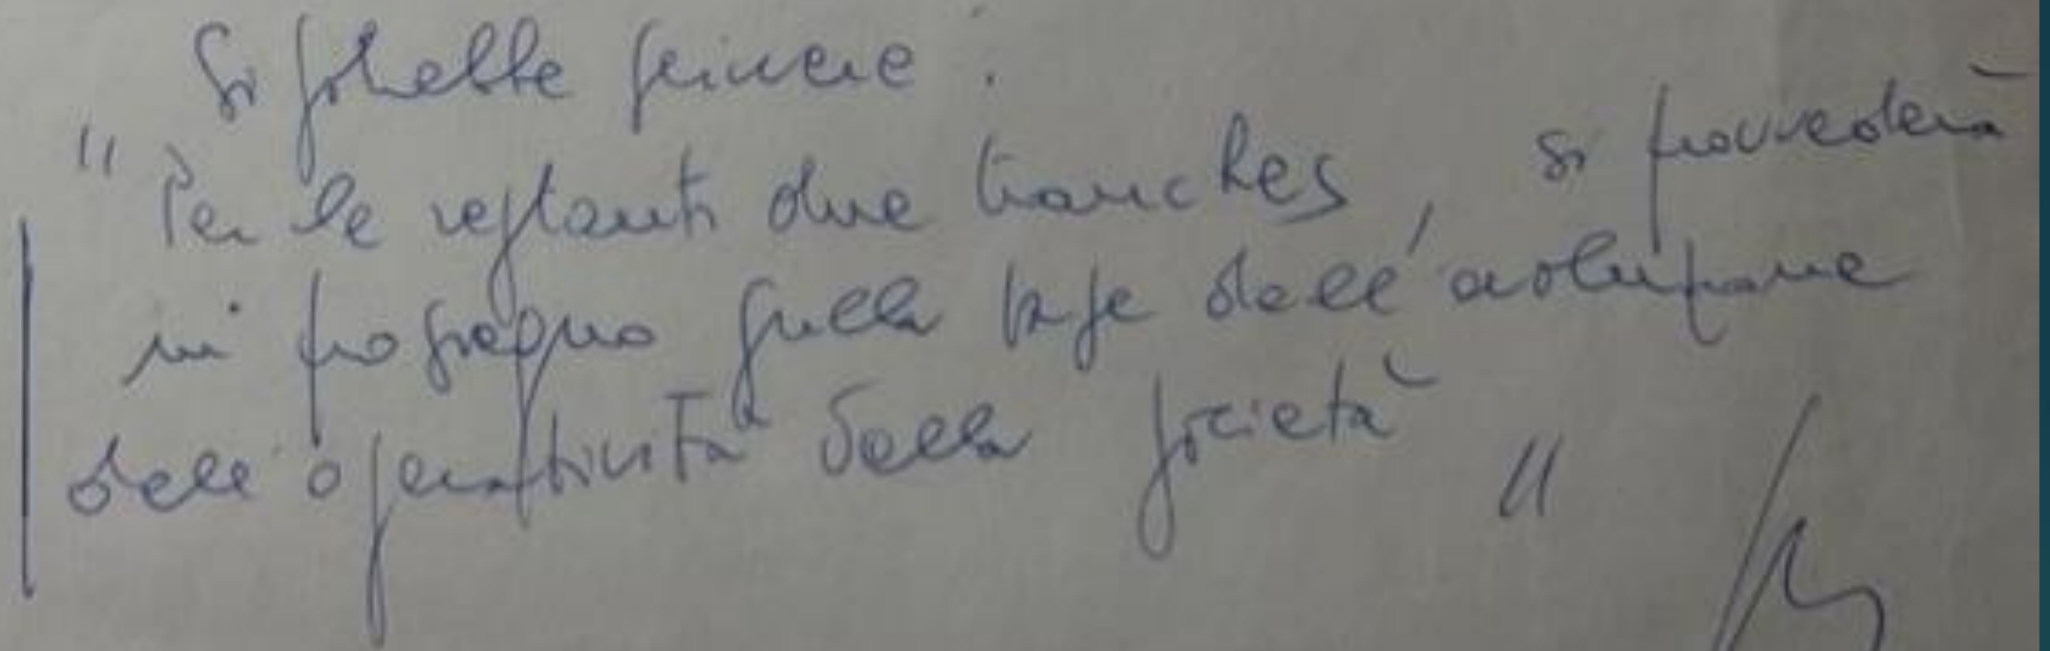 Si potrebbe scrivere :
" Per le restanti due tranches, si provvederà
in prosieguo sulla base dell'evoluzione
dell'operatività della società "